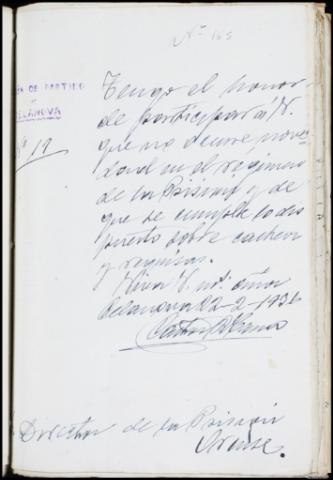 Nº 165
DE PARTIDO
DE
CELANOVA
Nº 19
Tengo el honor
de participar a V.
que no ocurre nove-
dad en el regimen
de la Prisión y de
que se cumple lo dis
puesto sobre cacheos
y requisas.
Viva V. m. años
Celanova 22-2-1936
Director de la Prisión
Orense.